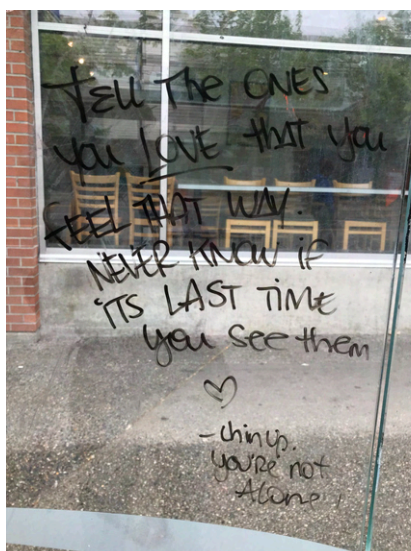 TELL The ONES
you LOVE that you
FEEL THAT WAY.
NEVER KNOW if
ITS LAST TIME
you see them
♡
-chin up.
you're not
Alone.